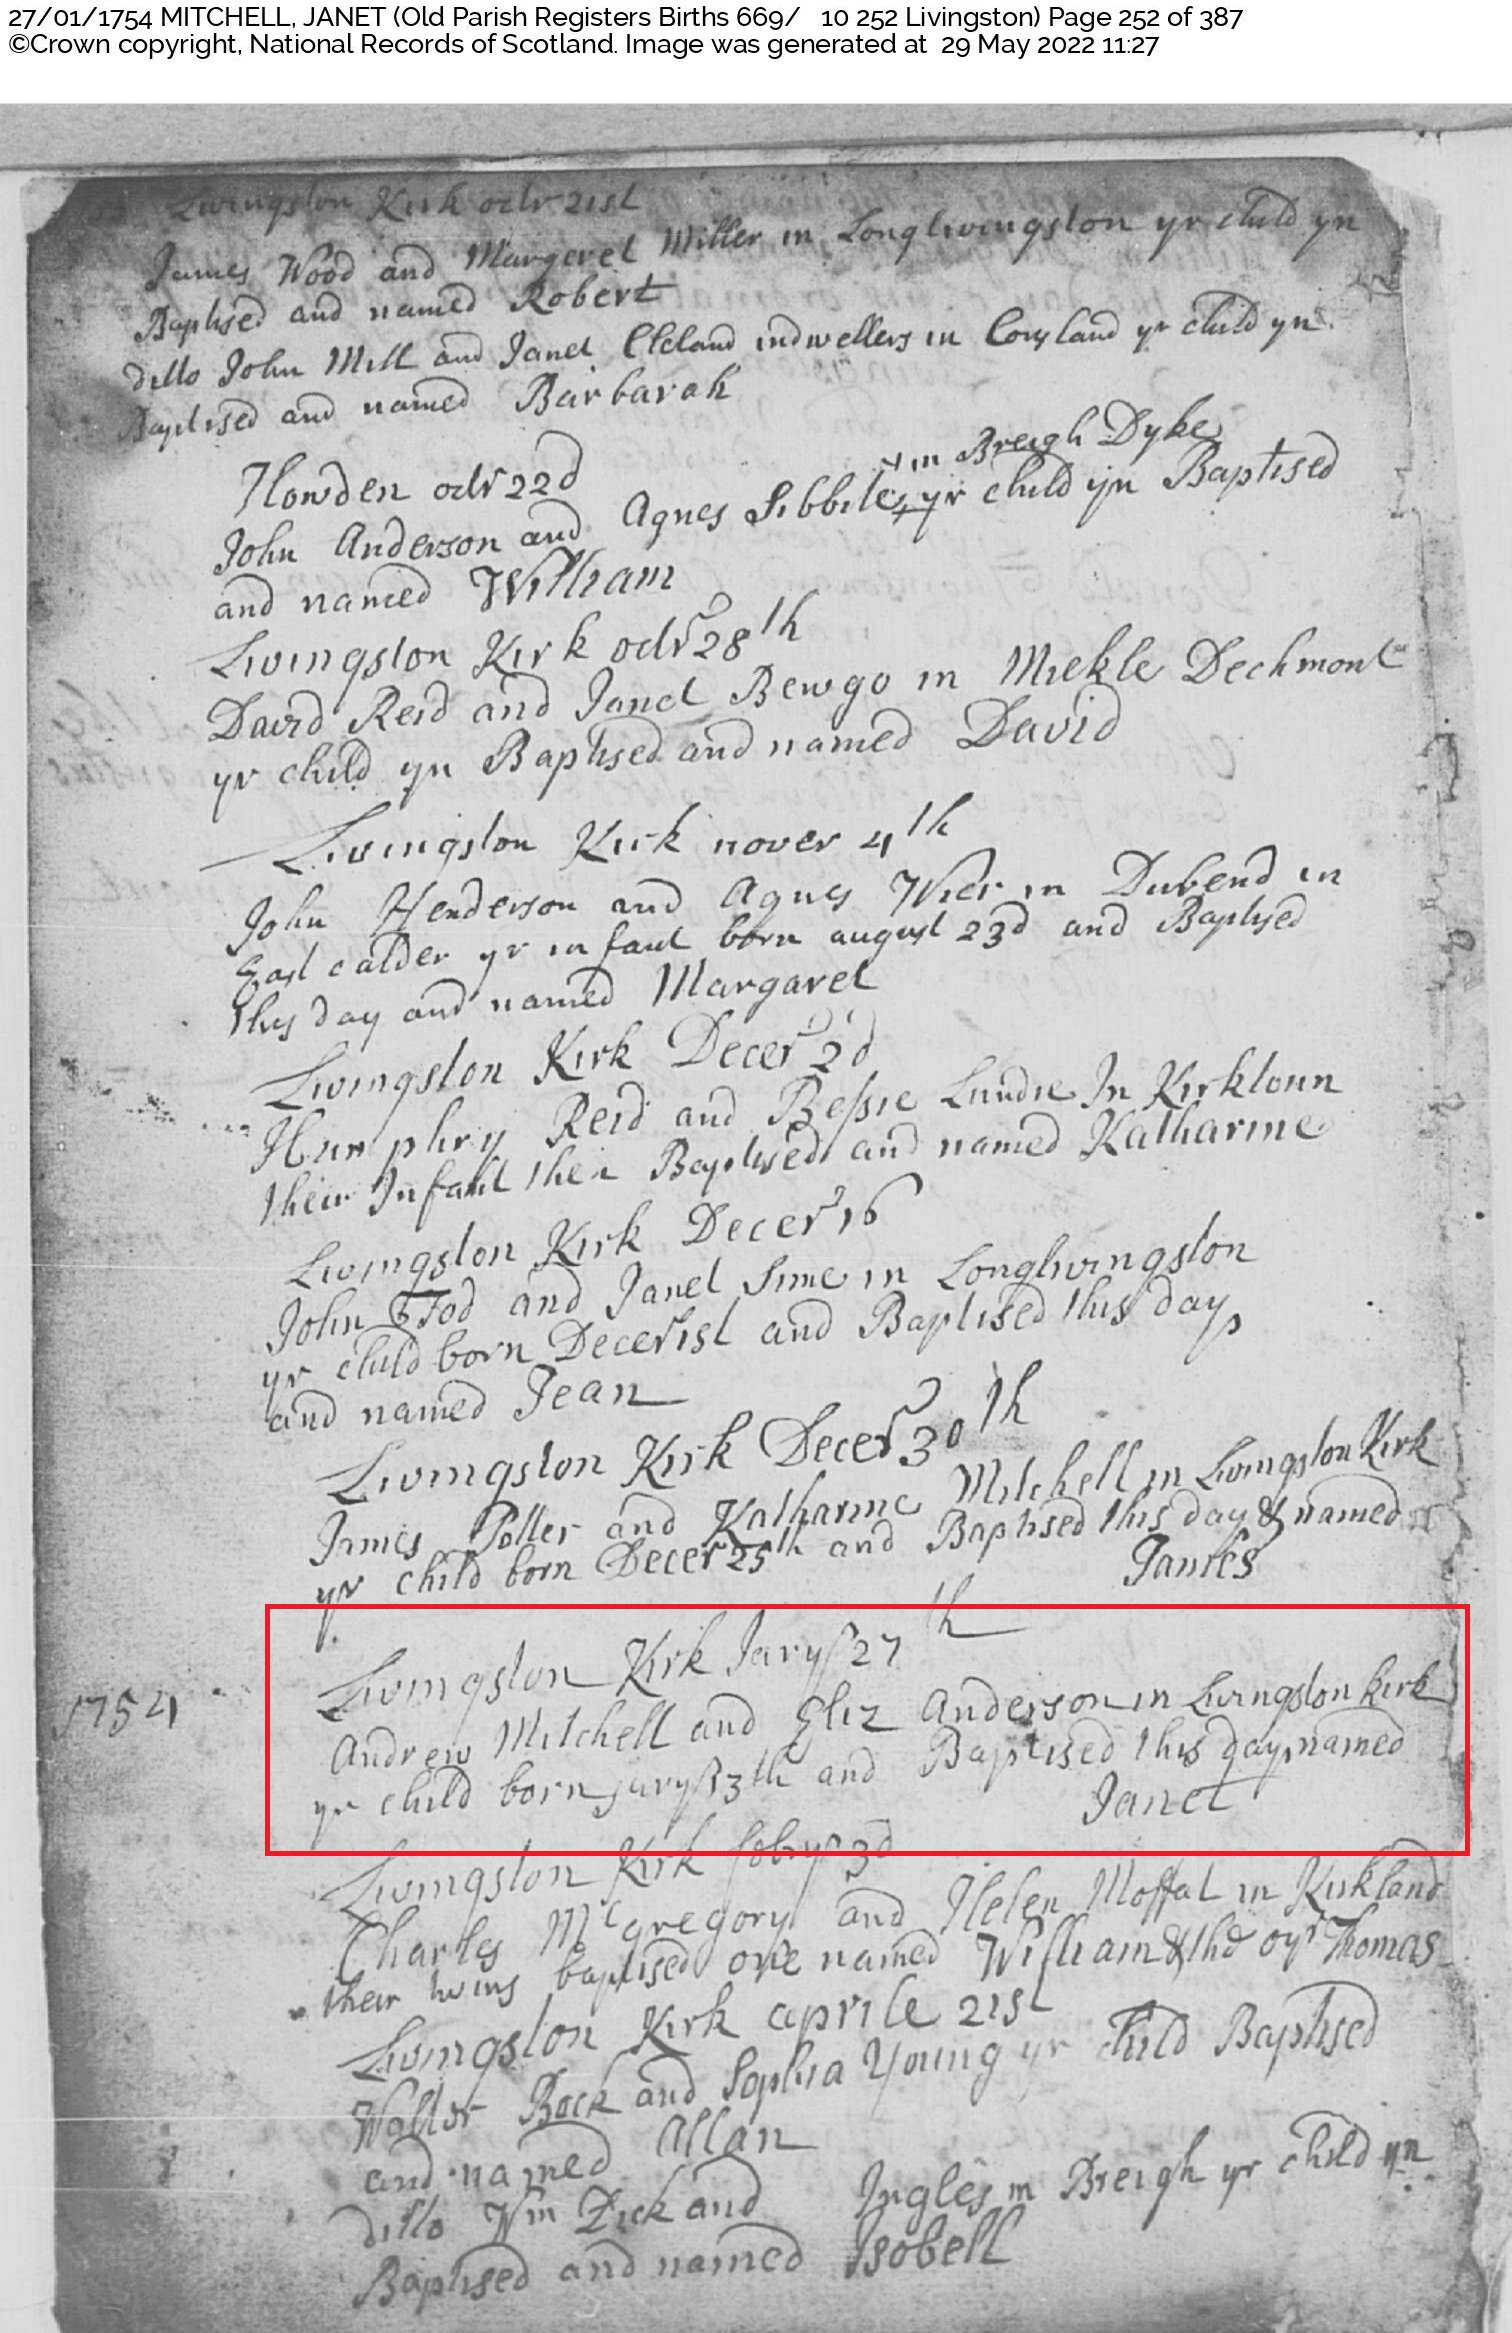 27/01/1754 MITCHELL, JANET (Old Parish Registers Births 669/ 10 252 Livingston) Page 252 of 387
©Crown copyright, National Records of Scotland. Image was generated at 29 May 2022 11:27
Livingston Kirk octr 21st
James Wood and Margeret Miller in Longlivingston yr child yn
Baptised and named Robert
ditto John Mill and Janet Cleland indwellers in Cousland yr child yn
Baptised and named Barbarah
Howden octr 22d
in Breigh Dyke
John Anderson and Agnes Sibbile yr child yn Baptised
and named William
Livingston Kirk octr 28th
David Reid and Janet Bewgo in Miekle Dechmont
yr child yn Baptised and named David
Livingston Kirk nover 4th
John Henderson and Agnes Wier in Dubend in
East calder yr infant born august 23d and Baptised
this day and named Margaret
Livingston Kirk Decer 2d
Humphry Reid and Bessie Lundie In Kirktoun
their Infant then Baptised and named Katharine
Livingston Kirk Decer 16
John Tod and Janet Sime in Longlivingston
yr child born Decer 1st and Baptised this day
and named Jean
Livingston Kirk Decer 30th
James Potter and Katharine Mitchell in Livingston Kirk
yr child born Decer 25th and Baptised this day & named
James
Livingston Kirk Jary 27th
1754
Andrew Mitchell and Eliz Anderson in Livingston Kirk
yr child born jary 13th and Baptised this day named
Janet
Livingston Kirk febry 3d
Charles McGregory and Helen Moffat in Kirkland
their twins baptised one named William & the oyr Thomas
Livingston Kirk aprile 21st
Walter Bock and Sophia Young yr child Baptised
and named Allan
ditto Wm Dick and Ingles in Breigh yr child yn
Baptised and named Isobell